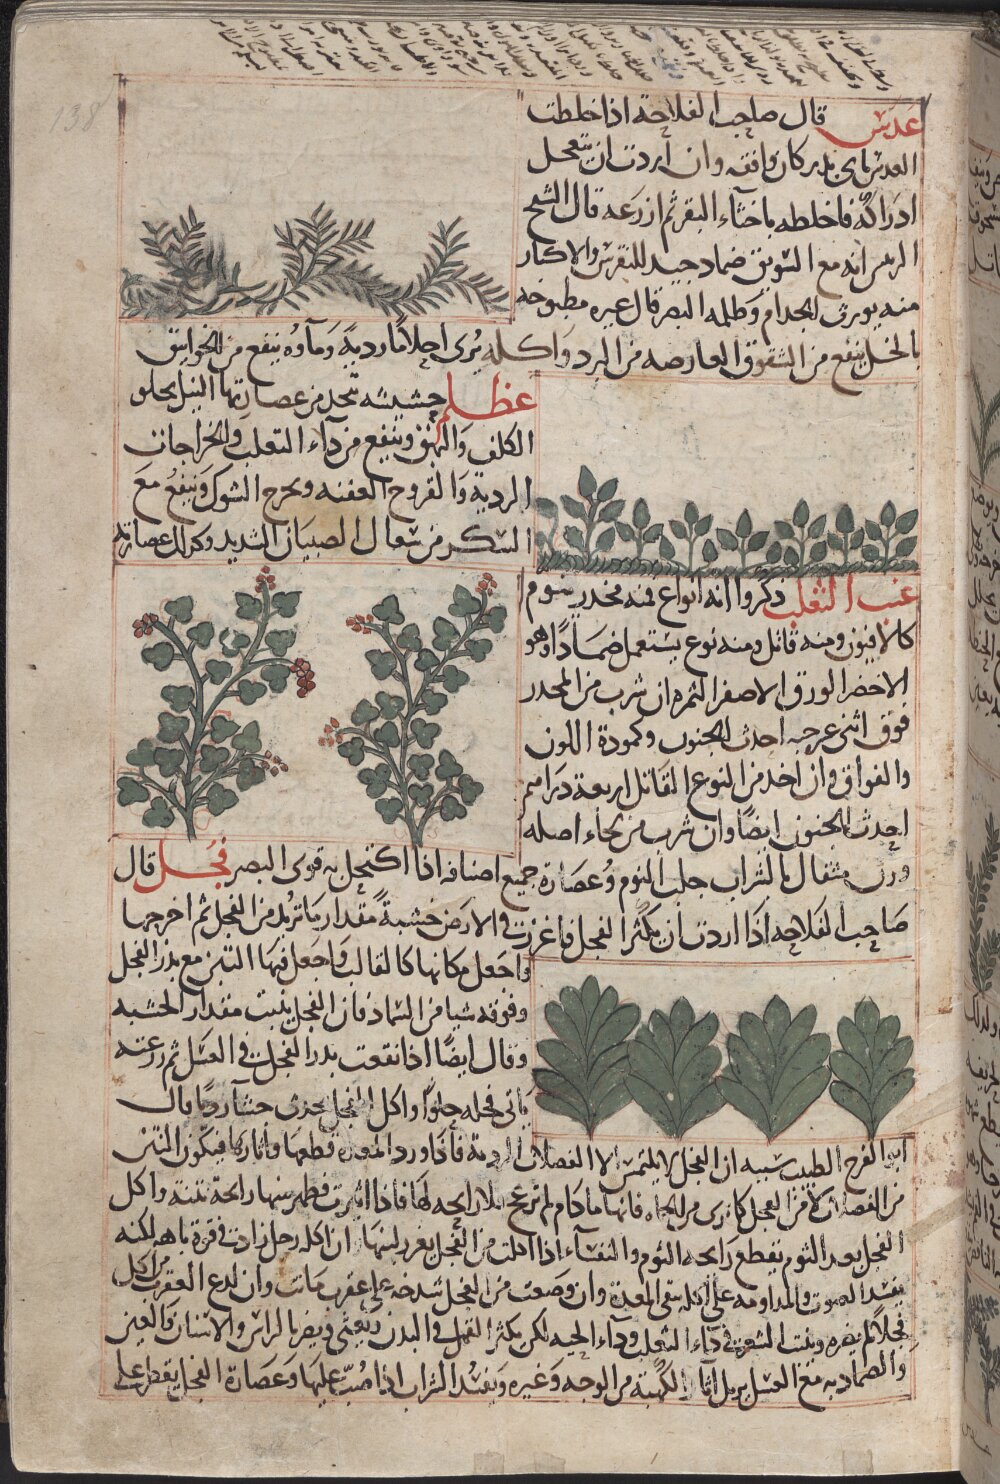 138
عدس قال صاحب الفلاحة اذا خلطت
العدس باى بذر كان وافقه وان اردت ان يتعجل
ادراكه فاخلطه باخثاء البقر ثم ازرعه قال الشيخ
الريس انه مع السويق ضماد جيد للنقرس والاكثار
منه يورث الجدام وظلمه البصر قال غيره مطبوخه
بالخل ينفع من الشقوق العارضه من البرد واكله يرى احلاما ردية وماؤه ينفع من الخوانيق
عظلم حشيشه تتخد من عصارتها النيل يجلو
الكلف والبهق وينفع من دآء الثعلب والخراجات
الردية والقروح العفنه ويخرج الشوك وينفع مع
السكر من سعال الصبيان الشديد وكدلك عصارته
عنب الثعلب ذكروا انه انواع فمنه مخدر ينوم
كالافيون ومنه قاتل ومنه نوع يستعمل ضمادا وهو
الاخضر الورق الاصفر الثمره ان شرب من المخدر
فوق اثنى عرحبه احدث الجنون وكمودة اللون
والفواق وان اخد من النوع القاتل اربعة دراهم
احدث الجنون ايضا وان شرب من لحاء اصله
وزن مثقال بالشراب جلب النوم وعصارة جميع اصنافه اذا اكتحل به قوى البصر فجل قال
صاحب الفلاحه اذا اردت ان يكثر الفجل فاغرز فى الارض خشبة مقدار ما تريد من الفجل ثم اخرجها
واجعل مكانها كالقالب واجعل فيها التبن مع بذر الفجل
وفوقه شيا من السماد فان الفجل ينبت مقدار الخشبه
وقال ايضا اذا نقعت بدر الفجل فى العسل ثم زرعته
ياتى فجله حلوا واكل الفجل يحدث جشآ رديا قال
ابو الفرج الطيب سببه ان الفجل لا يلتمس الا الفضلات الردية فاذا ورد المعدة قطعها واثارها فيكون النتن
من الفضلات لا من الفجل كما نرى من الحماه فانها مادام لم تزعج بلا رايحه لها فاذا اثيرت ظهر منها رايحة نتنة واكل
الفجل بعد الثوم يقطع رايحه الثوم والنفساء اذا اكلت من الفجل يغزر لبنها ان اكله رجل زادت فى قوة باهه لكنه
يفسد الصوت والمداومه على اكله ينقى المعدة وان وضعت من الفجل شدخه على عقرب ماتت وان لدع العقرب من اكل
فجلا لم يضره وينبت الشعر فى دآء الثعلب ودآء الحيه لكن يكثر القمل فى البدن ويغثى ويضر بالراس والاسنان والعين
والضماد به مع العسل يزيل اثار الكهبة من الوجه وغيره ويفسد الشراب اذا صب عليها وعصارة الفجل يقطر على